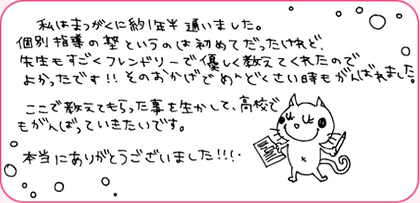 私はまつがくに約1年半通いました。
個別指導の塾というのは初めてだったけれど、
先生もすごくフレンドリーで優しく教えてくれたので
よかったです!!そのおかげでめんどくさい時もがんばれました。
ここで教えてもらった事を生かして、高校で
もがんばっていきたいです。
本当にありがとうございました!!!